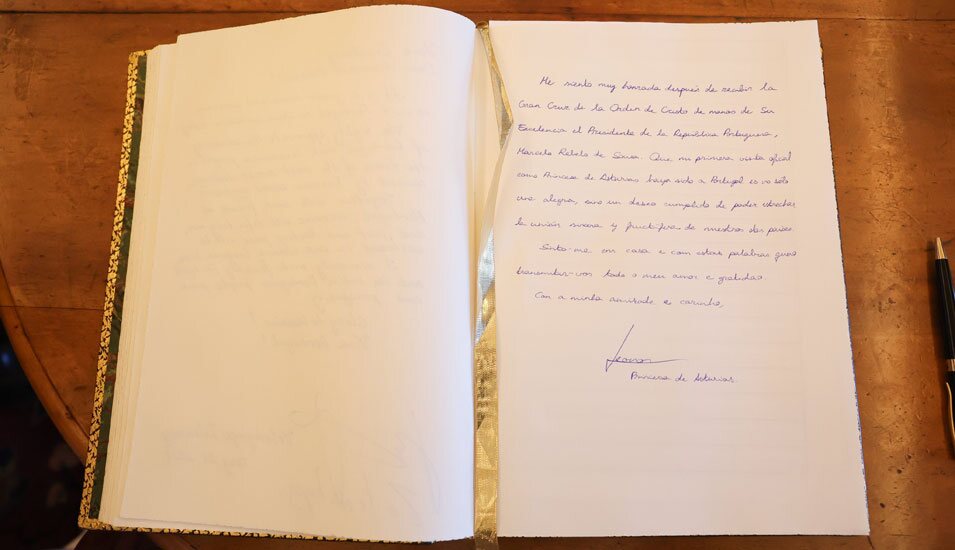 Me siento muy honrada después de recibir la
Gran Cruz de la Orden de Cristo de manos de Su
Excelencia el Presidente de la República Portuguesa,
Marcelo Rebelo de Sousa. Que mi primera visita oficial
como Princesa de Asturias haya sido a Portugal es no solo
una alegría, sino un deseo cumplido de poder estrechar
la unión sincera y fructífera de nuestros dos países.
Sinto-me em casa e com estas palabras quero
transmitir-vos todo o meu amor e gratidão.
Con a minha amizade e carinho,
Leonor
Princesa de Asturias